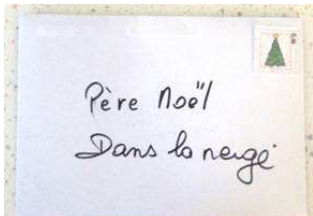 Père Noël
Dans la neige